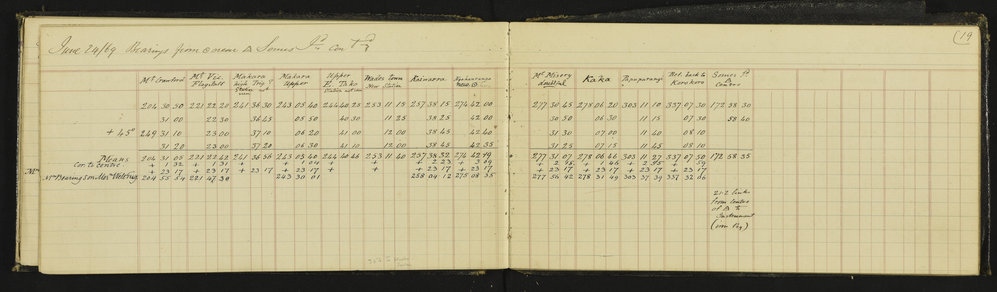 June 24/69 Bearings from near Δ Somes Id
(19
Mt Crawford Mt Vic. Flagstaff Makara high Trig Station Makara Upper Upper P. Tako Station Wades town New Station Kaiwarra Mt Misery doubtful Kaka Papuparangi Korokoro Somes Id Δ Centre
204 30 50 221 22 20 241 36 30 243 05 40 244 40 25 253 11 15 257 38 15 274 42 00 277 30 45 278 06 20 303 11 10 337 07 30 172 58 30
31 00 22 30 36 45 05 50 40 30 11 25 38 25 42 00 30 50 06 30 11 15 07 30 58 40
+ 45° 249 31 10 23 00 37 10 06 20 41 00 12 00 38 45 42 40 31 30 07 00 11 40 08 10
31 20 23 00 37 20 06 30 41 10 12 00 38 45 42 35 31 25 07 15 11 45 08 10
Means 204 31 05 221 22 42 241 36 56 243 05 40 244 40 46 253 11 40 257 38 32 274 42 19 277 31 07 278 06 46 303 11 27 337 07 50 172 58 35
Cor. to Centre + 1 32 + 1 31 + + 1 04 + + + 2 23 + + + 1 46 +
+ 23 17 + 23 17 + 23 17 + 23 17 + 23 17 + 23 17 + 23 17 + 23 17 + 23 17 + 23 17 + 23 17 + 23 17
Bearings on Mer. 204 55 54 221 47 30 243 30 01 258 04 12 275 08 35 277 56 42 278 31 49 303 37 39 337 32 06
21.2 links
from centre
of Δ to
Instrument
(iron Peg)